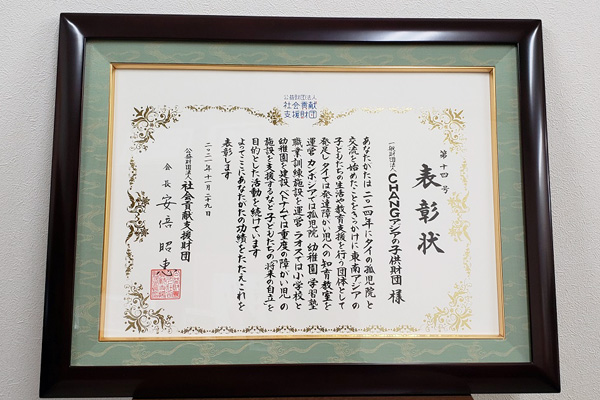 公益財団法人
社会貢献
支援財団
第十四号
表彰状
一般財団法人 CHANGアジアの子供財団 様
あなたがたは二〇一四年にタイの孤児院と
交流を始めたことをきっかけに東南アジアの
子どもたちの生活や教育支援を行う団体として
発足しタイでは発達障がい児への知育教室を
運営 カンボジアでは孤児院 幼稚園 学習塾
職業訓練施設を運営 ラオスでは小学校と
幼稚園を建設 ベトナムでは重度の障がい児の
施設を支援するなど子どもたちの「将来の自立」を
目的とした活動を続けています
よってここにあなたがたの功績をたたえこれを
表彰します
二〇二一年十一月二十九日
公益財団法人 社会貢献支援財団
会長 安倍昭恵